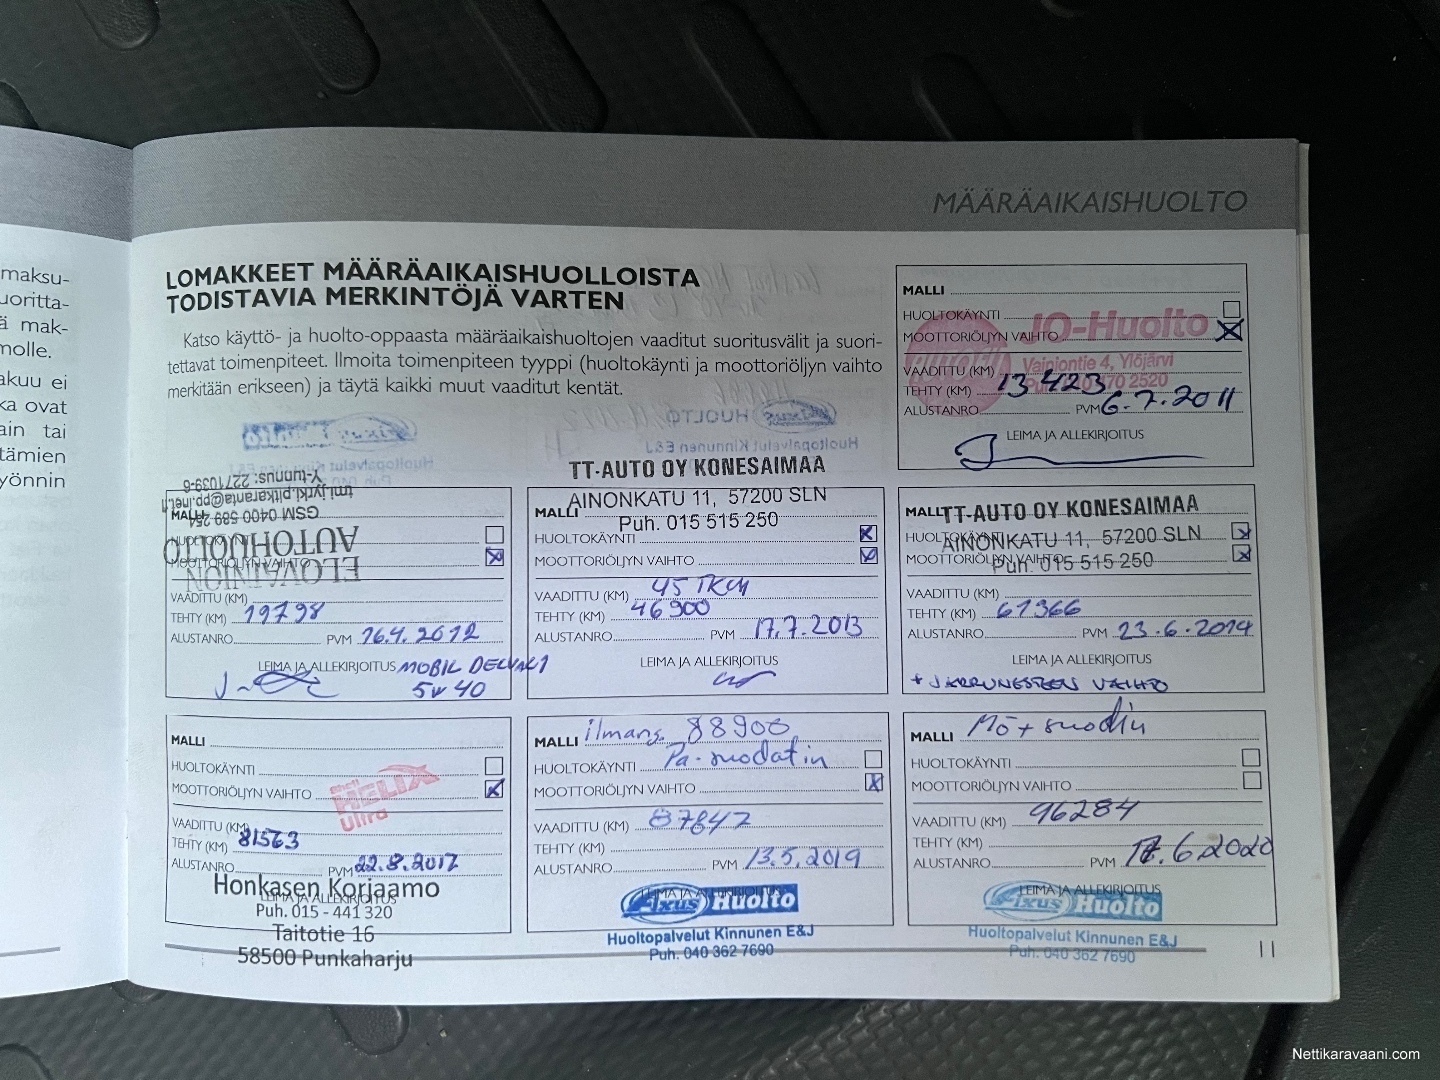 maksu-
uoritta-
ä mak-
molle.
akuu ei
ka ovat
ain tai
tämien
yönnin
MÄÄRÄAIKAISHUOLTO
LOMAKKEET MÄÄRÄAIKAISHUOLLOISTA
TODISTAVIA MERKINTÖJÄ VARTEN
Katso käyttö- ja huolto-oppaasta määräaikaishuoltojen vaaditut suoritusvälit ja suori-
tettavat toimenpiteet. Ilmoita toimenpiteen tyyppi (huoltokäynti ja moottoriöljyn vaihto
merkitään erikseen) ja täytä kaikki muut vaaditut kentät.
MALLI
HUOLTOKÄYNTI
JO-Huolto
MOOTTORIÖLJYN VAIHTO
Vainiontie 4, Ylöjärvi
VAADITTU (KM)
70 2520
TEHTY (KM) 13 423
ALUSTANRO PVM 6.7.2011
LEIMA JA ALLEKIRJOITUS
Y-tunnus: 2271039-6
tmi.jyrki.pitkaranta@pp.inet.fi
GSM 0400 589 254
AUTOHUOLTO
ELOVAINION
MALLI
HUOLTOKÄYNTI
MOOTTORIÖLJYN VAIHTO
VAADITTU (KM)
TEHTY (KM) 19798
ALUSTANRO PVM 16.4.2012
LEIMA JA ALLEKIRJOITUS MOBIL DELVAC 1
5W40
TT-AUTO OY KONESAIMAA
AINONKATU 11, 57200 SLN
Puh. 015 515 250
MALLI
HUOLTOKÄYNTI
MOOTTORIÖLJYN VAIHTO
VAADITTU (KM) 45 TKM
TEHTY (KM) 46900
ALUSTANRO PVM 17.7.2013
LEIMA JA ALLEKIRJOITUS
MALLI
TT-AUTO OY KONESAIMAA
AINONKATU 11, 57200 SLN
Puh. 015 515 250
HUOLTOKÄYNTI
MOOTTORIÖLJYN VAIHTO
VAADITTU (KM)
TEHTY (KM) 61366
ALUSTANRO PVM 23.6.2014
LEIMA JA ALLEKIRJOITUS
+ JARRUNESTEEN VAIHTO
MALLI
HUOLTOKÄYNTI
MOOTTORIÖLJYN VAIHTO
Shell
HELIX
Ultra
VAADITTU (KM)
TEHTY (KM) 81563
ALUSTANRO PVM 22.8.2017
LEIMA JA ALLEKIRJOITUS
Honkasen Korjaamo
Puh. 015 - 441 320
Taitotie 16
58500 Punkaharju
MALLI ilmans. 88900
HUOLTOKÄYNTI Pa-suodatin
MOOTTORIÖLJYN VAIHTO
VAADITTU (KM) 87847
TEHTY (KM)
ALUSTANRO PVM 13.5.2019
LEIMA JA ALLEKIRJOITUS
Fixus Huolto
Huoltopalvelut Kinnunen E&J
Puh. 040 362 7690
MALLI Mö + suodin
HUOLTOKÄYNTI
MOOTTORIÖLJYN VAIHTO
VAADITTU (KM) 96284
TEHTY (KM)
ALUSTANRO PVM 17.6.2020
LEIMA JA ALLEKIRJOITUS
Fixus Huolto
Huoltopalvelut Kinnunen E&J
Puh. 040 362 7690
11
Nettikaravaani.com